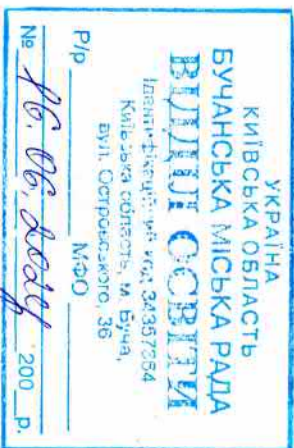 УКРАЇНА
КИЇВСЬКА ОБЛАСТЬ
БУЧАНСЬКА МІСЬКА РАДА
ВІДДІЛ ОСВІТИ
Ідентифікаційний код 34357364
Київська область, м. Буча,
вул. Островського, 36
Р/р МФО
№ 200 р.